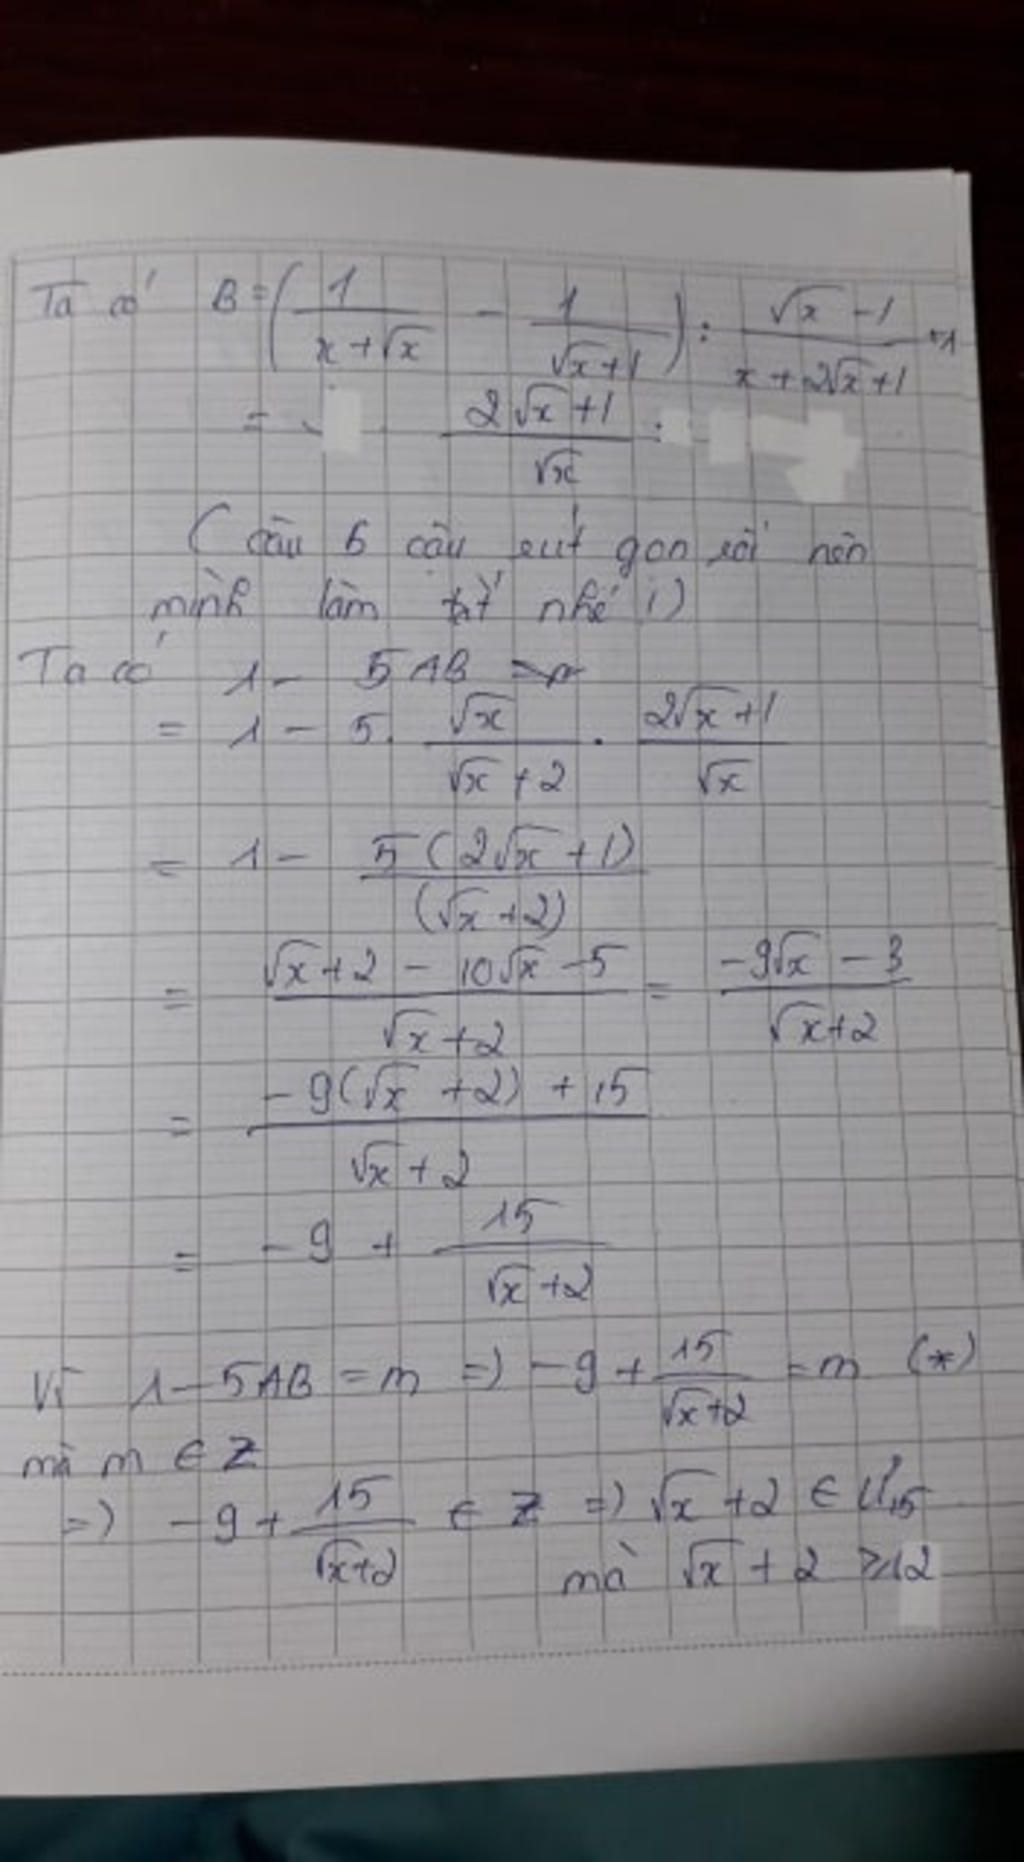 Ta có B = ( 1/(x+√x) - 1/(√x+1) ) : (√x-1)/(x+2√x+1)
= (2√x+1)/√x
( câu b cậu rút gọn rồi nên
mình làm tắt nhé i)
Ta có 1 - 5AB
= 1 - 5. √x/(√x+2) . (2√x+1)/√x
= 1 - 5(2√x+1)/(√x+2)
= (√x+2 - 10√x - 5)/(√x+2) = (-9√x - 3)/(√x+2)
= (-9(√x+2) + 15)/(√x+2)
= -9 + 15/(√x+2)
Vì 1-5AB = m =) -9 + 15/(√x+2) = m (*)
mà m ∈ Z
=) -9 + 15/(√x+2) ∈ Z =) √x+2 ∈ Ư15
mà √x + 2